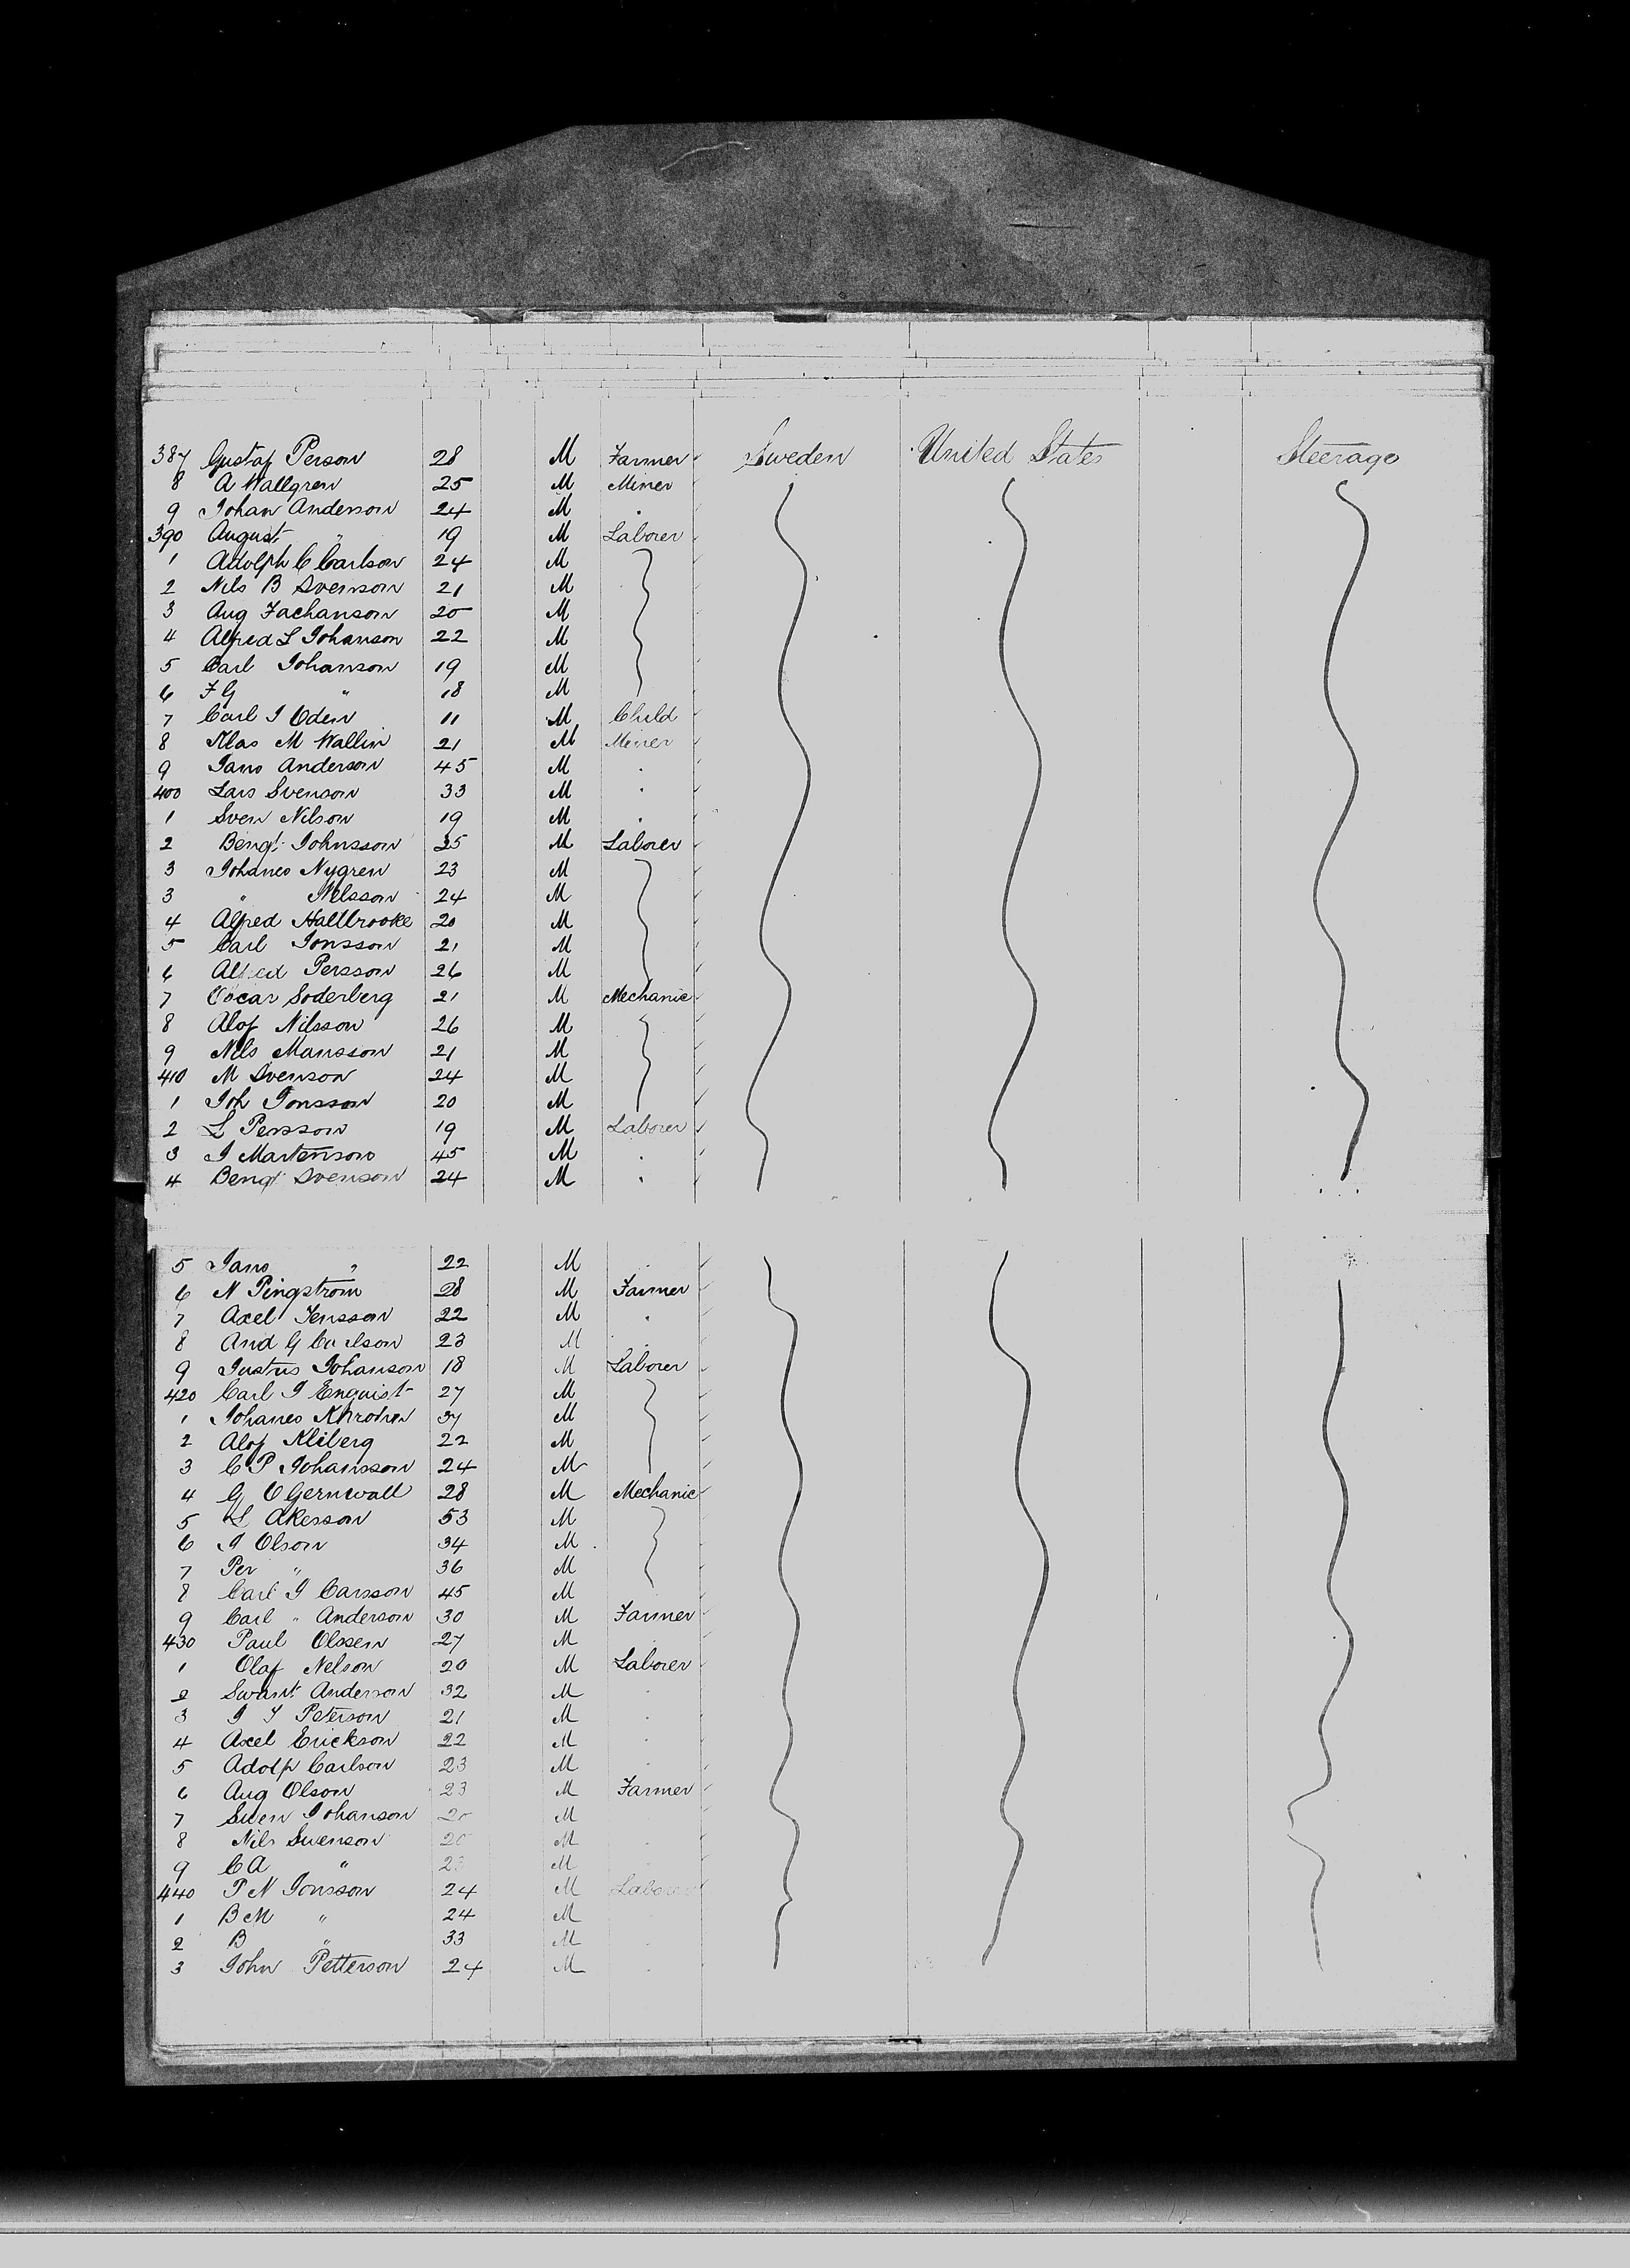 387 Gustaf Person 28 M Farmer Sweden United States Steerage
8 A Wallgren 25 M Miner
9 Johan Anderson 24 M "
390 August " 19 M Laborer
1 Adolph C Carlson 24 M
2 Nils B Svenson 21 M
3 Aug Zachanson 20 M
4 Alfred L Johanson 22 M
5 Carl Johanson 19 M
6 F G " 18 M
7 Carl J Oden 11 M Child
8 Klas M Wallin 21 M Miner
9 Jans Anderson 45 M "
400 Lars Svenson 33 M "
1 Sven Nilson 19 M "
2 Bengt Johnsson 35 M Laborer
3 Johanes Nygren 23 M
3 " Nelsson 24 M
4 Alfred Hallbrooke 20 M
5 Carl Jonsson 21 M
6 Alfred Persson 26 M
7 Oscar Soderberg 21 M Mechanic
8 Alof Nilsson 26 M
9 Nils Mansson 21 M
410 M Svenson 24 M
1 Joh Jonsson 20 M
2 L Persson 19 M Laborer
3 J Martenson 45 M "
4 Bengt Svenson 24 M "
5 Jans " 22 M "
6 N Pingstrom 28 M Farmer
7 Axel Jensson 22 M "
8 And G Carlson 23 M "
9 Justus Johanson 18 M Laborer
420 Carl J Enquist 27 M
1 Johanes 37 M
2 Alof Kliberg 22 M
3 C P Johansson 24 M
4 G O Gernwall 28 M Mechanic
5 L Akerson 53 M
6 J Olson 34 M
7 Per " 36 M
8 Carl J Carsson 45 M
9 Carl " Anderson 30 M Farmer
430 Paul Olssen 27 M "
1 Olaf Nelson 20 M Laborer
2 Swant Anderson 32 M "
3 J Peterson 21 M "
4 Axel Erickson 22 M "
5 Adolf Carlson 23 M "
6 Aug Olson 23 M Farmer
7 Swen Johanson 20 M "
8 Nils Swenson 20 M "
9 C A " 23 M "
440 P N Jonsson 24 M Laborer
1 B M " 24 M "
2 B " 33 M "
3 John Petterson 24 M "